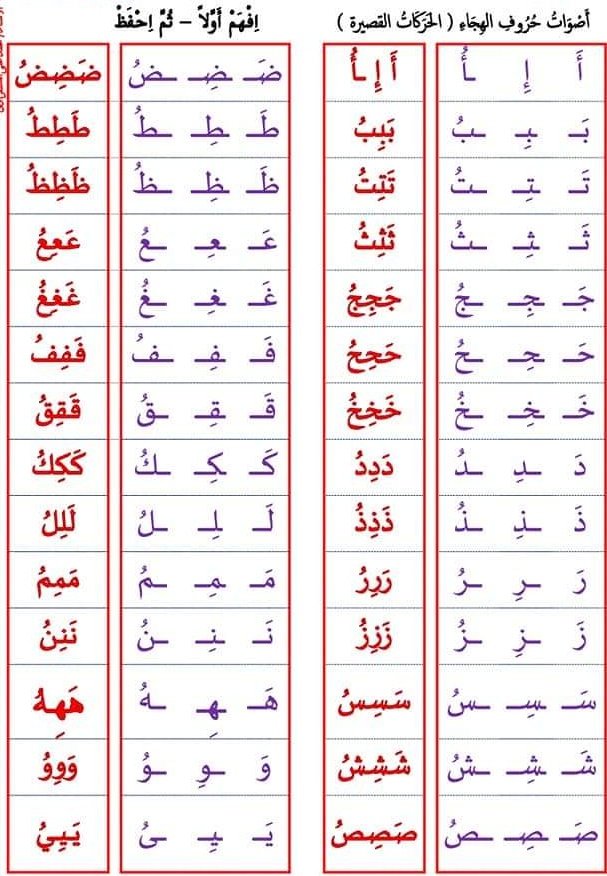 أَصْوَاتُ حُرُوفِ الهِجَاءِ ( الحَرَكَاتُ القصيرة )
إِفْهَمْ أَوَّلاً – ثُمَّ اِحْفَظْ
أَ إِ ـأُ أَ إِ ـأُ
بَـ ـبِـ ـبُ بَبِبُ
تَـ ـتِـ ـتُ تَتِتُ
ثَـ ـثِـ ـثُ ثَثِثُ
جَـ ـجِـ ـجُ جَجِجُ
حَـ ـحِـ ـحُ حَحِحُ
خَـ ـخِـ ـخُ خَخِخُ
دَ ـدِ ـدُ دَدِدُ
ذَ ـذِ ـذُ ذَذِذُ
رَ ـرِ ـرُ رَرِرُ
زَ ـزِ ـزُ زَزِزُ
سَـ ـسِـ ـسُ سَسِسُ
شَـ ـشِـ ـشُ شَشِشُ
صَـ ـصِـ ـصُ صَصِصُ
ضَـ ـضِـ ـضُ ضَضِضُ
طَـ ـطِـ ـطُ طَطِطُ
ظَـ ـظِـ ـظُ ظَظِظُ
عَـ ـعِـ ـعُ عَعِعُ
غَـ ـغِـ ـغُ غَغِغُ
فَـ ـفِـ ـفُ فَفِفُ
قَـ ـقِـ ـقُ قَقِقُ
كَـ ـكِـ ـكُ كَكِكُ
لَـ ـلِـ ـلُ لَلِلُ
مَـ ـمِـ ـمُ مَمِمُ
نَـ ـنِـ ـنُ نَنِنُ
هَـ ـهِـ ـهُ هَهِهُ
وَ ـوِ ـوُ وَوِوُ
يَـ ـيِـ ـىُ يَيِيُ